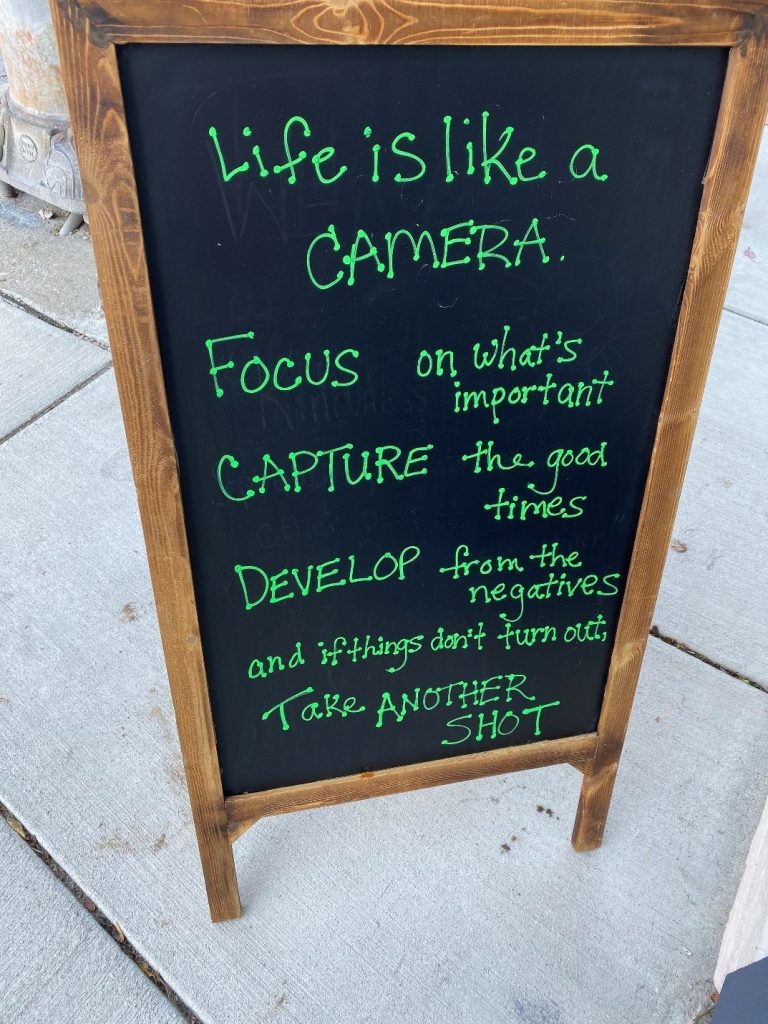 Life is like a
CAMERA.
FOCUS on what's
important
CAPTURE the good
times
DEVELOP from the
negatives
and if things don't turn out,
Take ANOTHER
SHOT